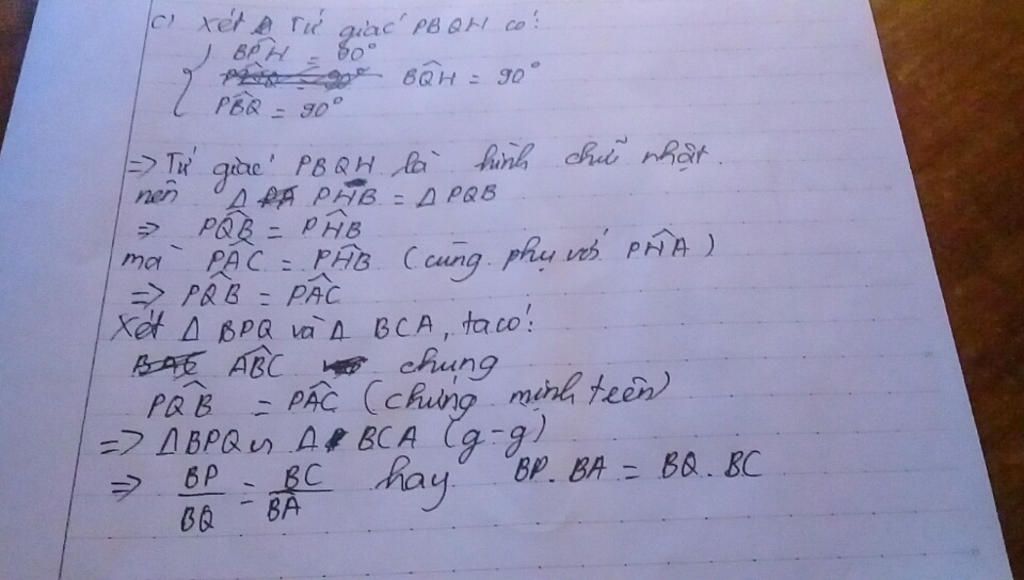 c) Xét Tứ giác PBQH có:
BP̂H = 90°
BQ̂H = 90°
PB̂Q = 90°
=> Tứ giác PBQH là hình chữ nhật.
nên Δ PHB = Δ PQB
=> PQ̂B = PĤB
mà PÂC = PĤB (cùng phụ với PĤA)
=> PQ̂B = PÂC
Xét Δ BPQ và Δ BCA, ta có:
AB̂C chung
PQ̂B = PÂC (chứng minh trên)
=> ΔBPQ ∽ Δ BCA (g-g)
=> BP/BQ = BC/BA hay BP. BA = BQ. BC